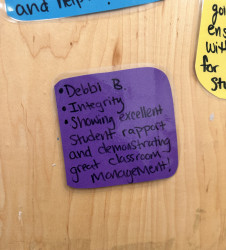 and help
• Debbi B.
• Integrity
• Showing excellent
student rapport
and demonstrating
great classroom
management!
wit
for